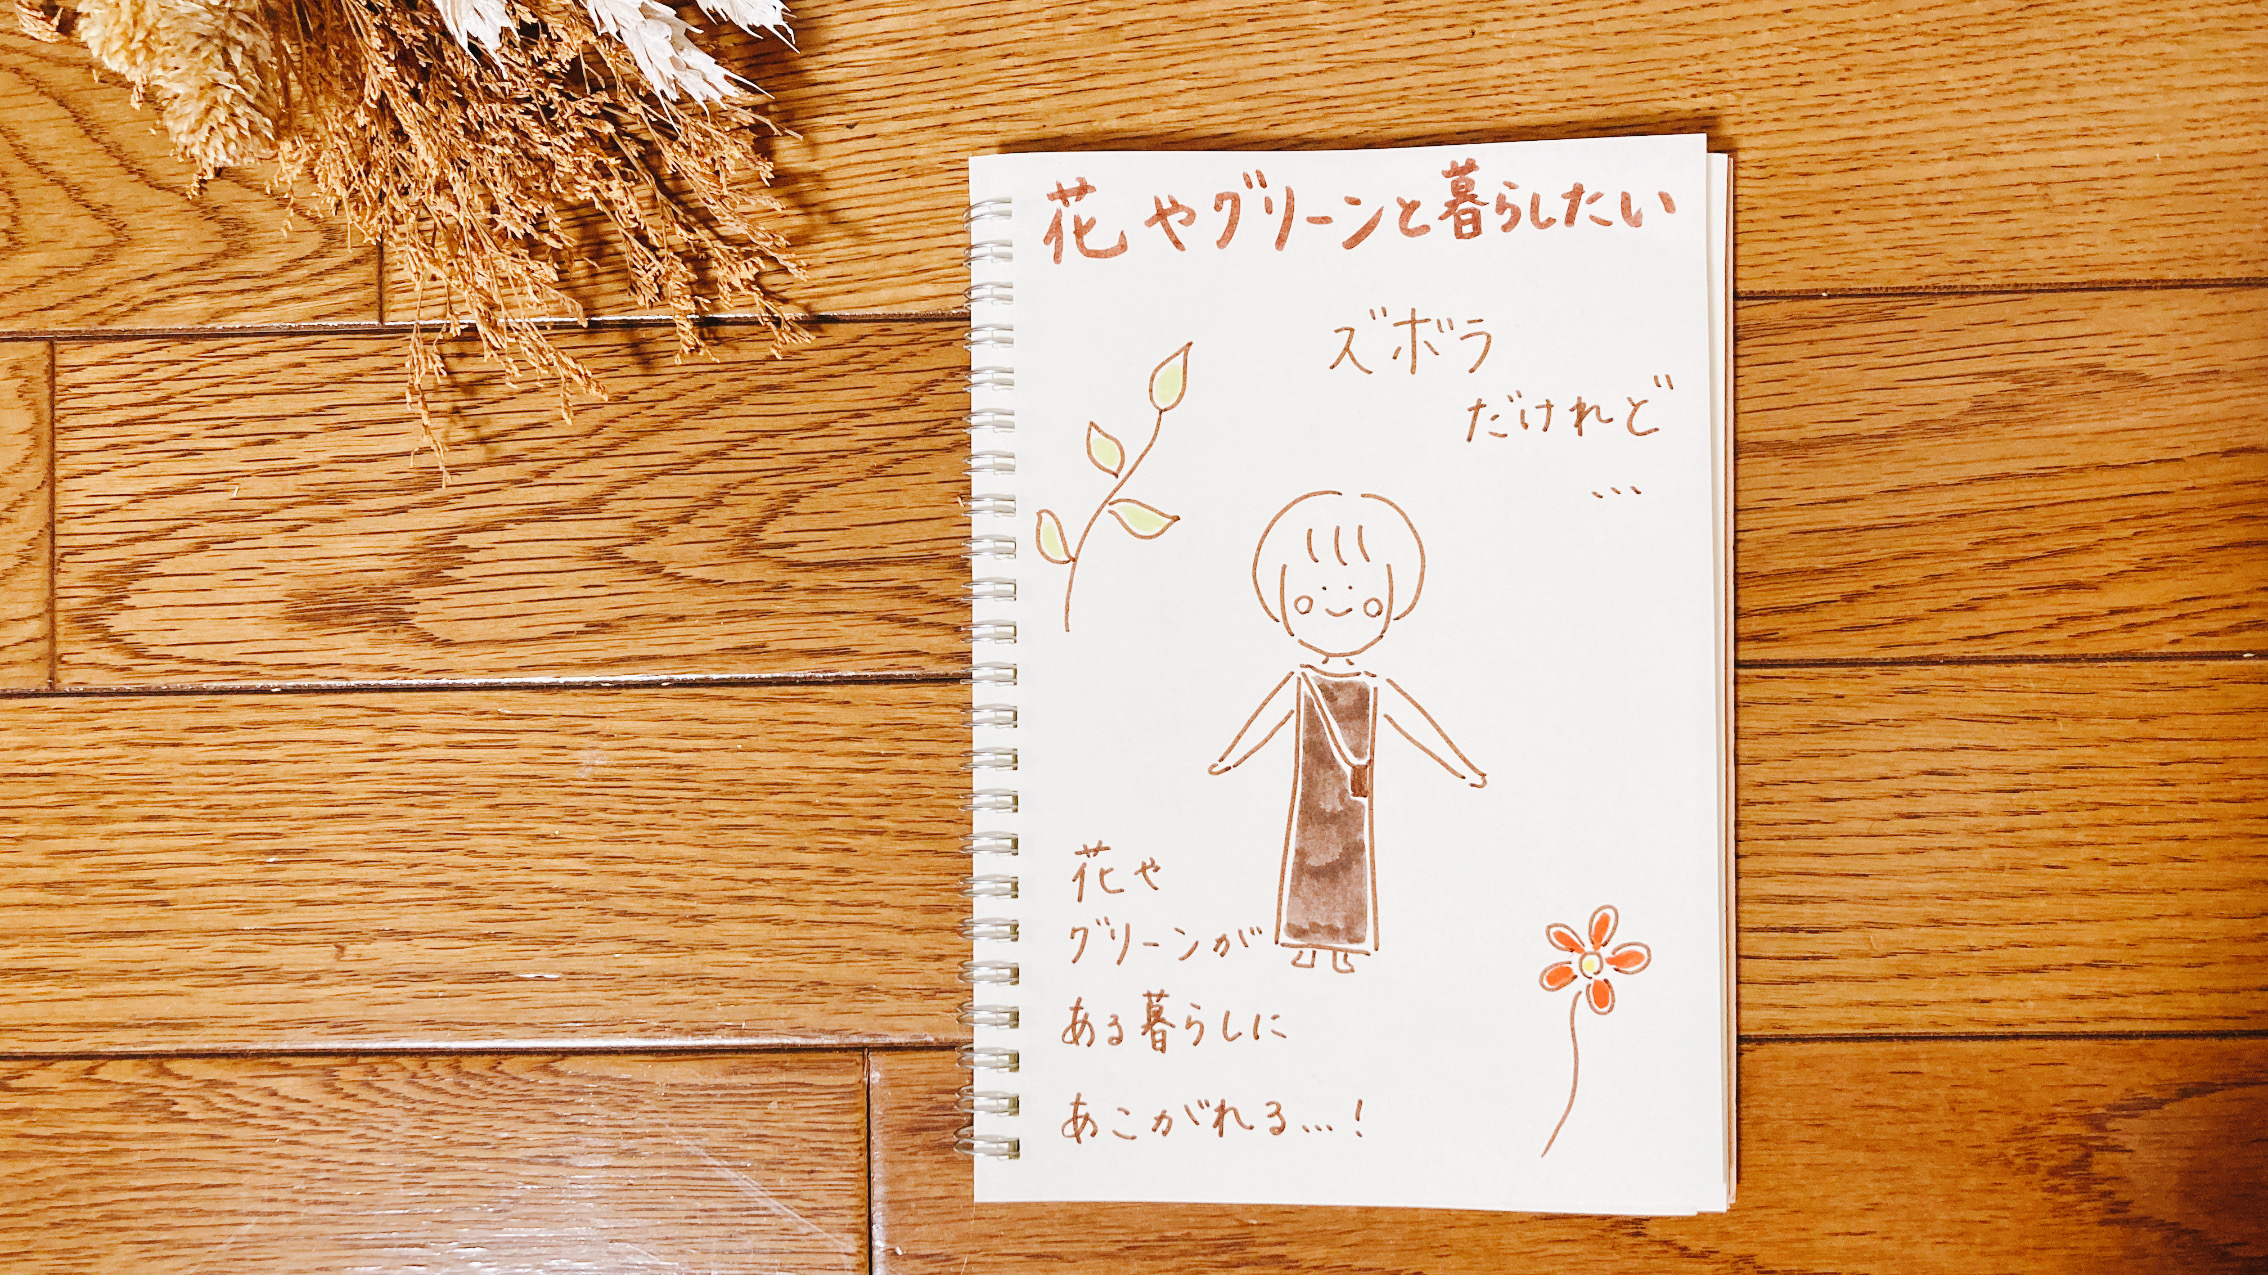 花やグリーンと暮らしたい
ズボラ
だけれど
…
花や
グリーンが
ある暮らしに
あこがれる…!